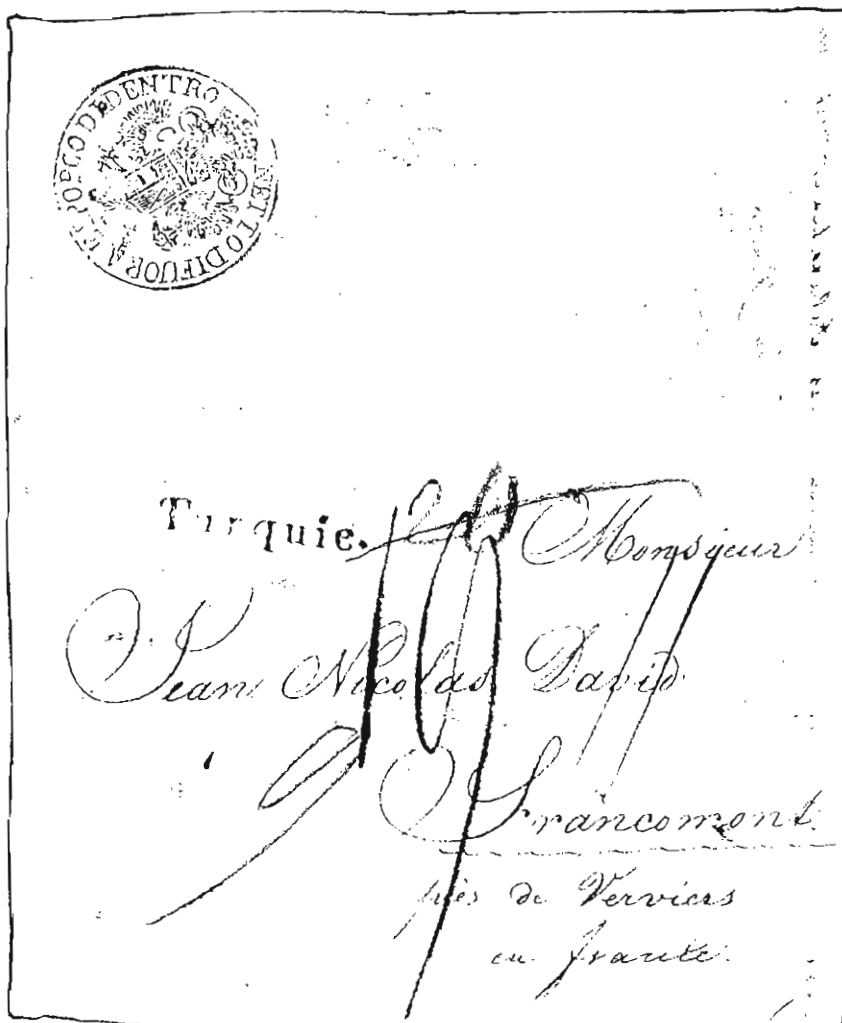 NETTO DI FUORA E SPORCO DI DENTRO
Turquie.
Monsieur
Jean Nicolas David
Francomont
près de Verviers
en france